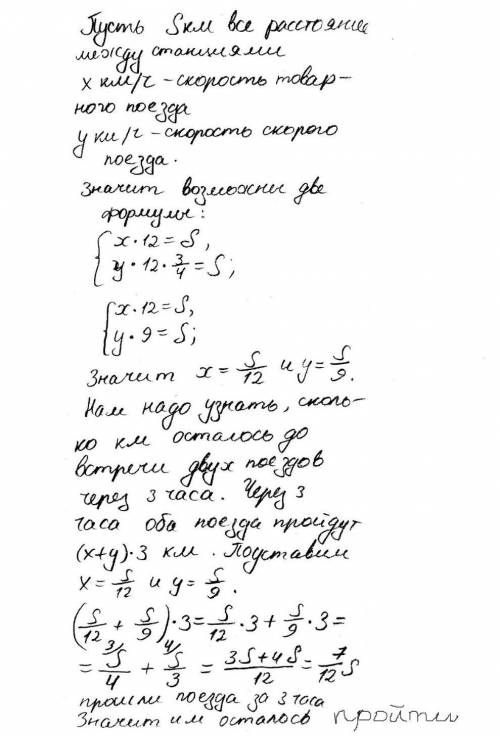 Пусть S км все расстояние
между станциями
x км/ч - скорость товар-
ного поезда
y км/ч - скорость скорого
поезда.
Значит возможны две
формулы:
{ x · 12 = S,
y · 12 · 3/4 = S;
{ x · 12 = S,
y · 9 = S;
Значит x = S/12 и y = S/9.
Нам надо узнать, сколь-
ко км осталось до
встречи двух поездов
через 3 часа. Через 3
часа оба поезда пройдут
(x+y)·3 км. Подставим
x = S/12 и y = S/9.
(S/12 + S/9)·3 = S/12 · 3 + S/9 · 3 =
= 3/ S/4 + 4/ S/3 = 3S+4S/12 = 7/12 S
прошли поезда за 3 часа
Значит им осталось пройти